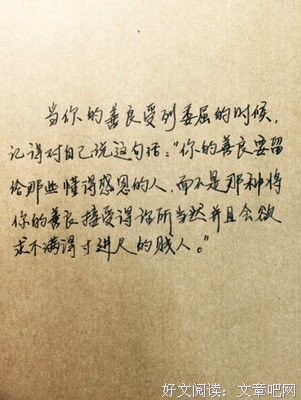 当你的善良受到委屈的时候，
记得对自己说这句话："你的善良要留
给那些懂得感恩的人，而不是那种将
你的善良接受得理所当然并且会欲
求不满得寸进尺的贱人。"
好文阅读：文章吧网